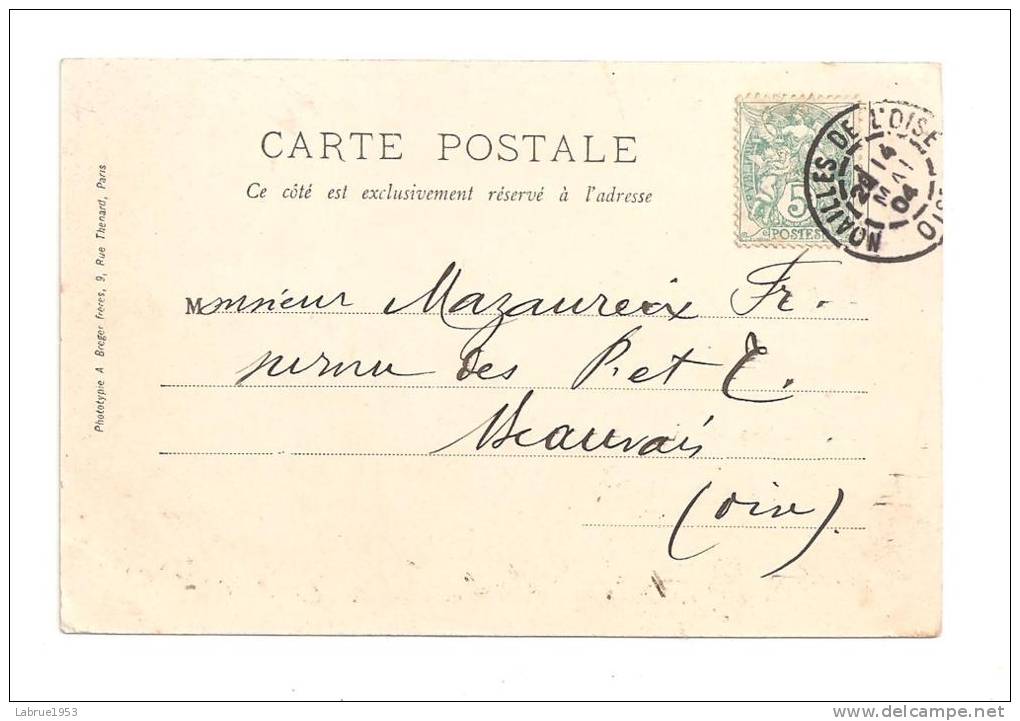 CARTE POSTALE
Ce côté est exclusivement réservé à l'adresse
NOAILLES DE L'OISE
OISE
14
24 MAI
04
5
POSTES
Monsieur Mazaureix Fr.
des P. et T.
Beauvais
(Oise).
Phototypie A Breger frères, 9, Rue Thenard, Paris
Labrue1953
www.delcampe.net